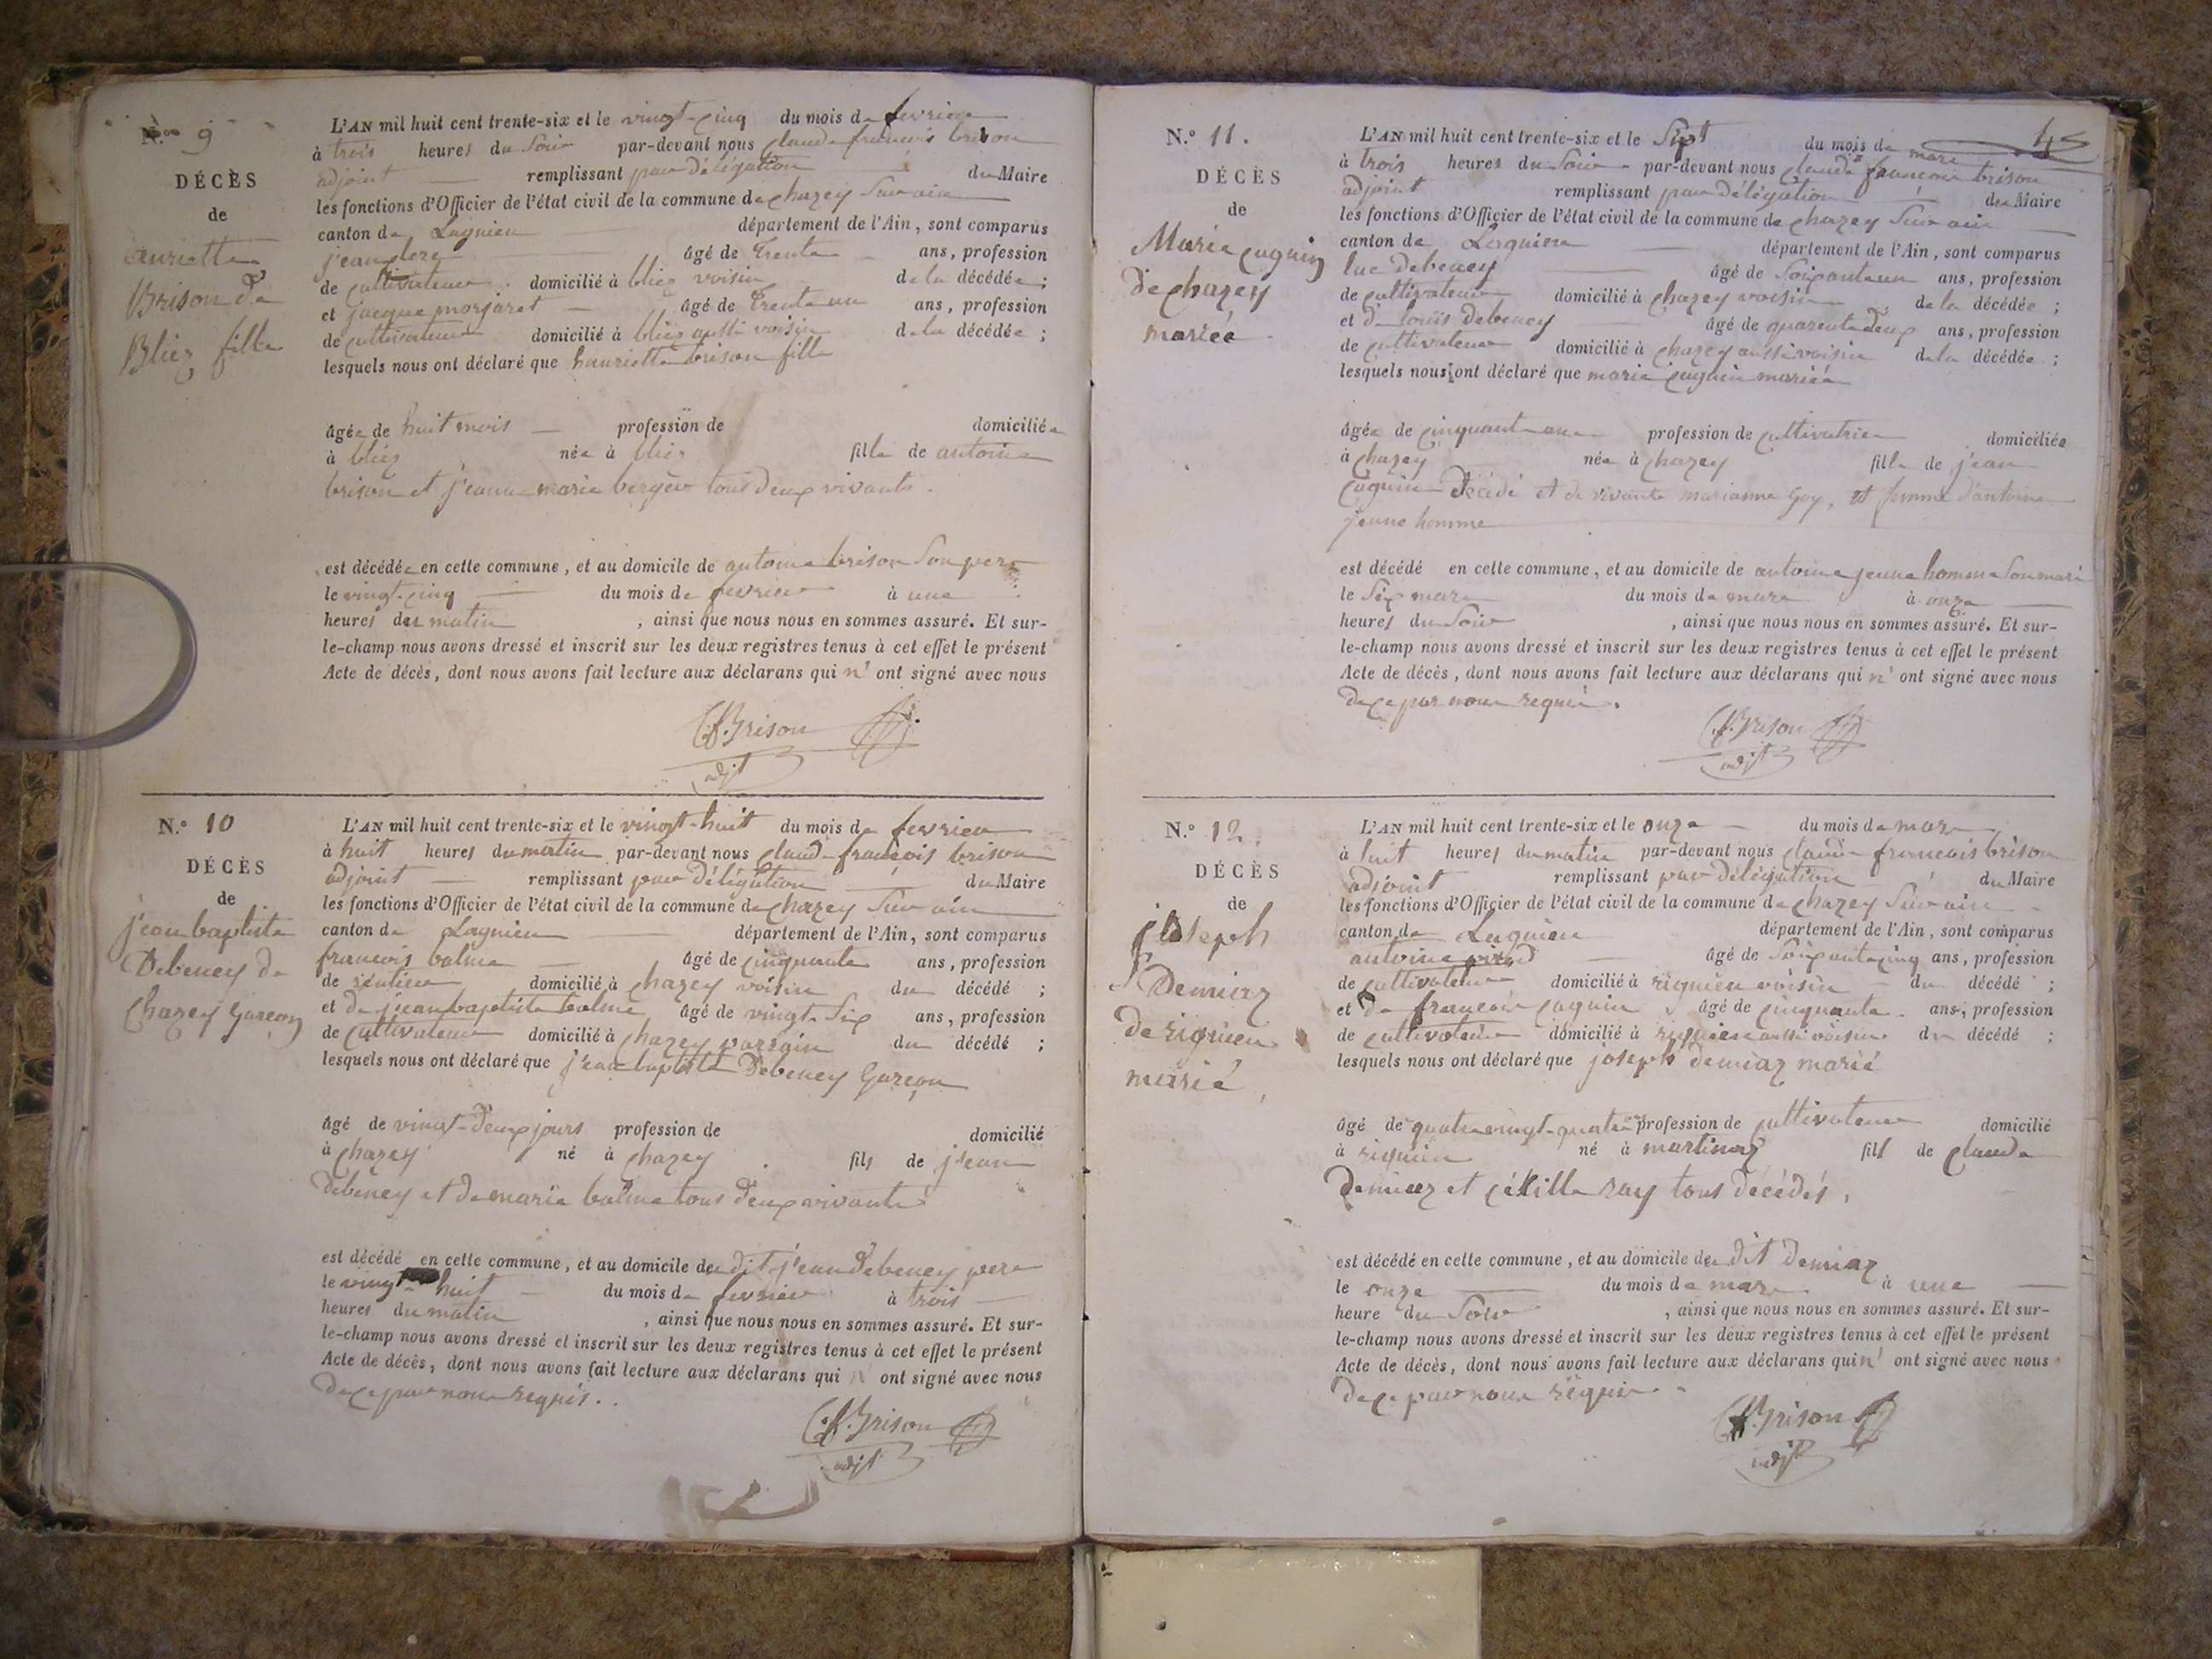 N.º 9
DÉCÈS
de
auriette
Brison de
Bliez fille
L'AN mil huit cent trente-six et le vingt-cinq du mois de fevrier
à trois heures du Soir par-devant nous claude francois brison
adjoint remplissant par délégation du Maire
les fonctions d'Officier de l'état civil de la commune de chazey Sur ain
canton de Lagnieu département de l'Ain, sont comparus
jean âgé de trente ans, profession
de cultivateur domicilié à bliez voisin de la décédée ;
et jacque morjaret âgé de trente un ans, profession
de cultivateur domicilié à bliez aussi voisin de la décédée ;
lesquels nous ont déclaré que hauriette brison fille
âgée de huit mois profession de domiciliée
à bliez née à bliez fille de antoine
brison et jeanne marie bergèr tous deux vivants.
est décédée en cette commune, et au domicile de antoine brison Son pere
le vingt-cinq du mois de fevrier à une
heures du matin , ainsi que nous nous en sommes assuré. Et sur-
le-champ nous avons dressé et inscrit sur les deux registres tenus à cet effet le présent
Acte de décès, dont nous avons fait lecture aux déclarans qui n' ont signé avec nous
C.f. Brison
adjt
N.º 10
DÉCÈS
de
jean baptiste
Debeney de
Chazey Garcon
L'AN mil huit cent trente-six et le vingt-huit du mois de fevrier
à huit heures du matin par-devant nous claude françois brison
adjoint remplissant par délégation du Maire
les fonctions d'Officier de l'état civil de la commune de chazey Sur ain
canton de Lagnieu département de l'Ain, sont comparus
francois balme âgé de cinquante ans, profession
de rentier domicilié à chazey voisin du décédé ;
et de jean baptiste balme âgé de vingt Six ans, profession
de cultivateur domicilié à chazey parrain du décédé ;
lesquels nous ont déclaré que jean baptiste Debeney Garçon
âgé de vingt-deux jours profession de domicilié
à chazey né à chazey fils de jean
debeney et de marie balme tous deux vivants
est décédé en cette commune, et au domicile du dit jean debeney pere
le vingt-huit du mois de fevrier à trois
heures du matin , ainsi que nous nous en sommes assuré. Et sur-
le-champ nous avons dressé et inscrit sur les deux registres tenus à cet effet le présent
Acte de décès, dont nous avons fait lecture aux déclarans qui n ont signé avec nous
de ce par nous requis.
C.f. Brison
adjt
45
N.º 11.
DÉCÈS
de
Marie cuguin
de chazey
mariée
L'AN mil huit cent trente-six et le Sept du mois de mars
à trois heures du Soir par-devant nous claude francois brison
adjoint remplissant par délégation du Maire
les fonctions d'Officier de l'état civil de la commune de chazey Sur ain
canton de Lagnieu département de l'Ain, sont comparus
luc debeney âgé de Soixante un ans, profession
de cultivateur domicilié à chazey voisin de la décédée ;
et de louis debeney âgé de quarente deux ans, profession
de cultivateur domicilié à chazey aussi voisin de la décédée ;
lesquels nous ont déclaré que marie cuguin mariée
âgée de cinquante un profession de cultivatrice domiciliée
à chazey née à chazey fille de jean
cuguin décédé et de vivante marianne Goy, et femme d'antoine
jeune homme
est décédé en cette commune, et au domicile de antoine jeune homme Son mari
le Six mars du mois de mars à onze
heures du Soir , ainsi que nous nous en sommes assuré. Et sur-
le-champ nous avons dressé et inscrit sur les deux registres tenus à cet effet le présent
Acte de décès, dont nous avons fait lecture aux déclarans qui n' ont signé avec nous
de ce par nous requis.
C.f. Brison
adjt
N.º 12.
DÉCÈS
de
joseph
Demiaz
de rignieu
marié
L'AN mil huit cent trente-six et le onze du mois de mars
à huit heures du matin par-devant nous claude francois brison
adjoint remplissant par délégation du Maire
les fonctions d'Officier de l'état civil de la commune de chazey Sur ain
canton de Lagnieu département de l'Ain, sont comparus
antoine âgé de Soixante cinq ans, profession
de cultivateur domicilié à rignieu voisin du décédé ;
et de francois cuguin âgé de cinquante ans, profession
de cultivateur domicilié à rignieu aussi voisin du décédé ;
lesquels nous ont déclaré que joseph demiaz marié
âgé de quatrevingt-quatre ans profession de cultivateur domicilié
à rignieu né à martinaz fils de claude
Demiaz et ray tous décédés,
est décédé en cette commune, et au domicile du dit demiaz
le onze du mois de mars à une
heure du Soir , ainsi que nous nous en sommes assuré. Et sur-
le-champ nous avons dressé et inscrit sur les deux registres tenus à cet effet le présent
Acte de décès, dont nous avons fait lecture aux déclarans qui n' ont signé avec nous
de ce par nous requis
C.f. Brison
adjt